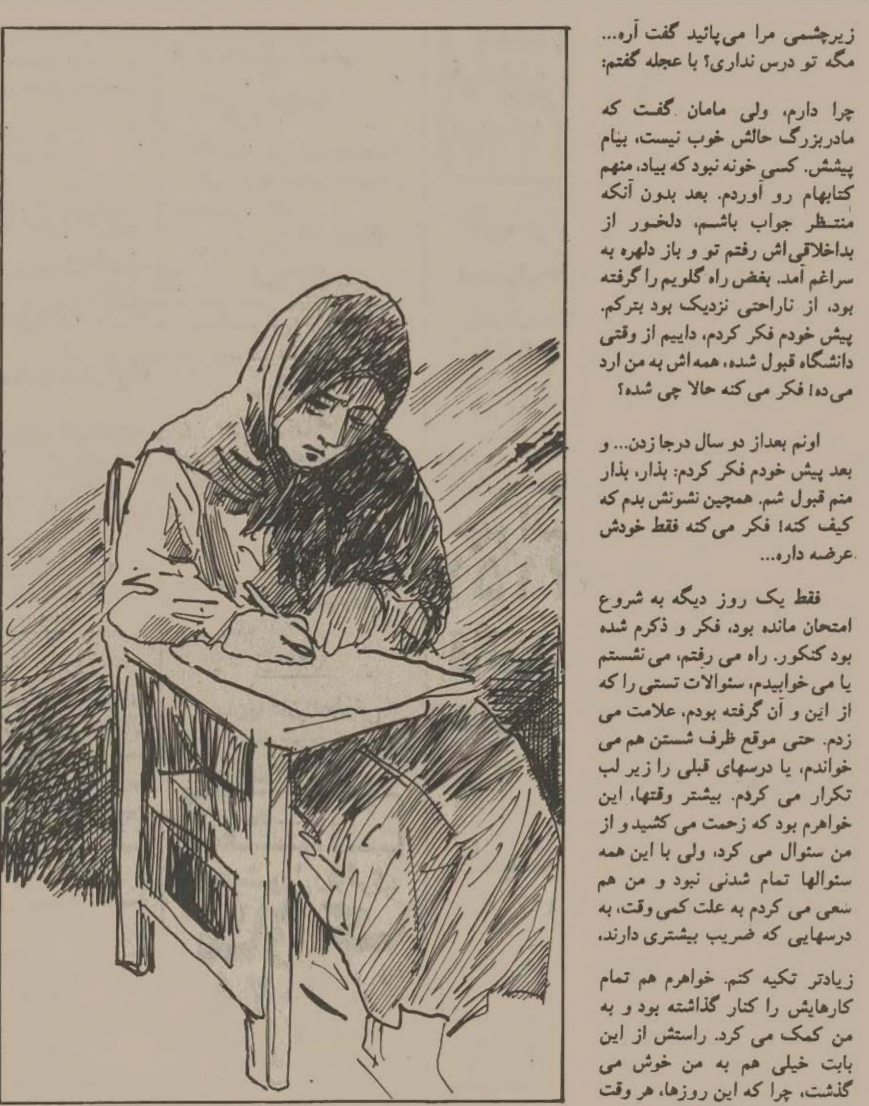 زیرچشمی مرا می‌پائید گفت آره...
مگه تو درس نداری؟ با عجله گفتم:
چرا دارم، ولی مامان گفت که
مادربزرگ حالش خوب نیست، بیام
پیشش. کسی خونه نبود که بیاد، منهم
کتابهام رو آوردم. بعد بدون آنکه
منتظر جواب باشم، دلخور از
بداخلاقی‌اش رفتم تو و باز دلهره به
سراغم آمد. بغض راه گلویم را گرفته
بود، از ناراحتی نزدیک بود بترکم.
پیش خودم فکر کردم، داییم از وقتی
دانشگاه قبول شده، همه‌اش به من ارد
می‌ده! فکر می‌کنه حالا چی شده؟
اونم بعداز دو سال درجا زدن... و
بعد پیش خودم فکر کردم: بذار، بذار
منم قبول شم. همچین نشونش بدم که
کیف کنه! فکر می‌کنه فقط خودش
عرضه داره...
فقط یک روز دیگه به شروع
امتحان مانده بود، فکر و ذکرم شده
بود کنکور. راه می رفتم، می‌نشستم
یا می‌خوابیدم، سئوالات تستی را که
از این و آن گرفته بودم، علامت می
زدم. حتی موقع ظرف شستن هم می
خواندم، یا درسهای قبلی را زیر لب
تکرار می کردم. بیشتر وقتها، این
خواهرم بود که زحمت می کشید و از
من سئوال می کرد، ولی با این همه
سئوالها تمام شدنی نبود و من هم
سعی می کردم به علت کمی وقت، به
درسهایی که ضریب بیشتری دارند،
زیادتر تکیه کنم. خواهرم هم تمام
کارهایش را کنار گذاشته بود و به
من کمک می کرد. راستش از این
بابت خیلی هم به من خوش می
گذشت، چرا که این روزها، هر وقت